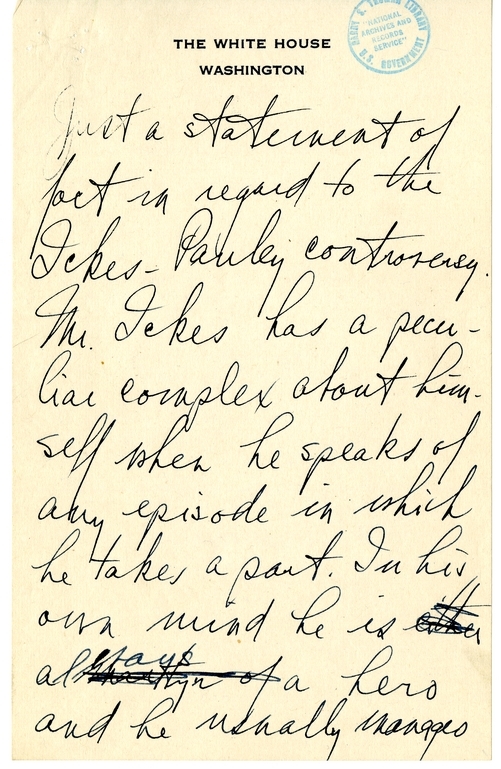 THE WHITE HOUSE
WASHINGTON
HARRY S. TRUMAN LIBRARY
"NATIONAL
ARCHIVES AND
RECORDS
SERVICE"
U.S. GOVERNMENT
Just a statement of
fact in regard to the
Ickes-Pauley controversy.
Mr. Ickes has a pecu-
liar complex about him-
self when he speaks of
any episode in which
he takes a part. In his
own mind he is either
always of a hero
and he usually manages